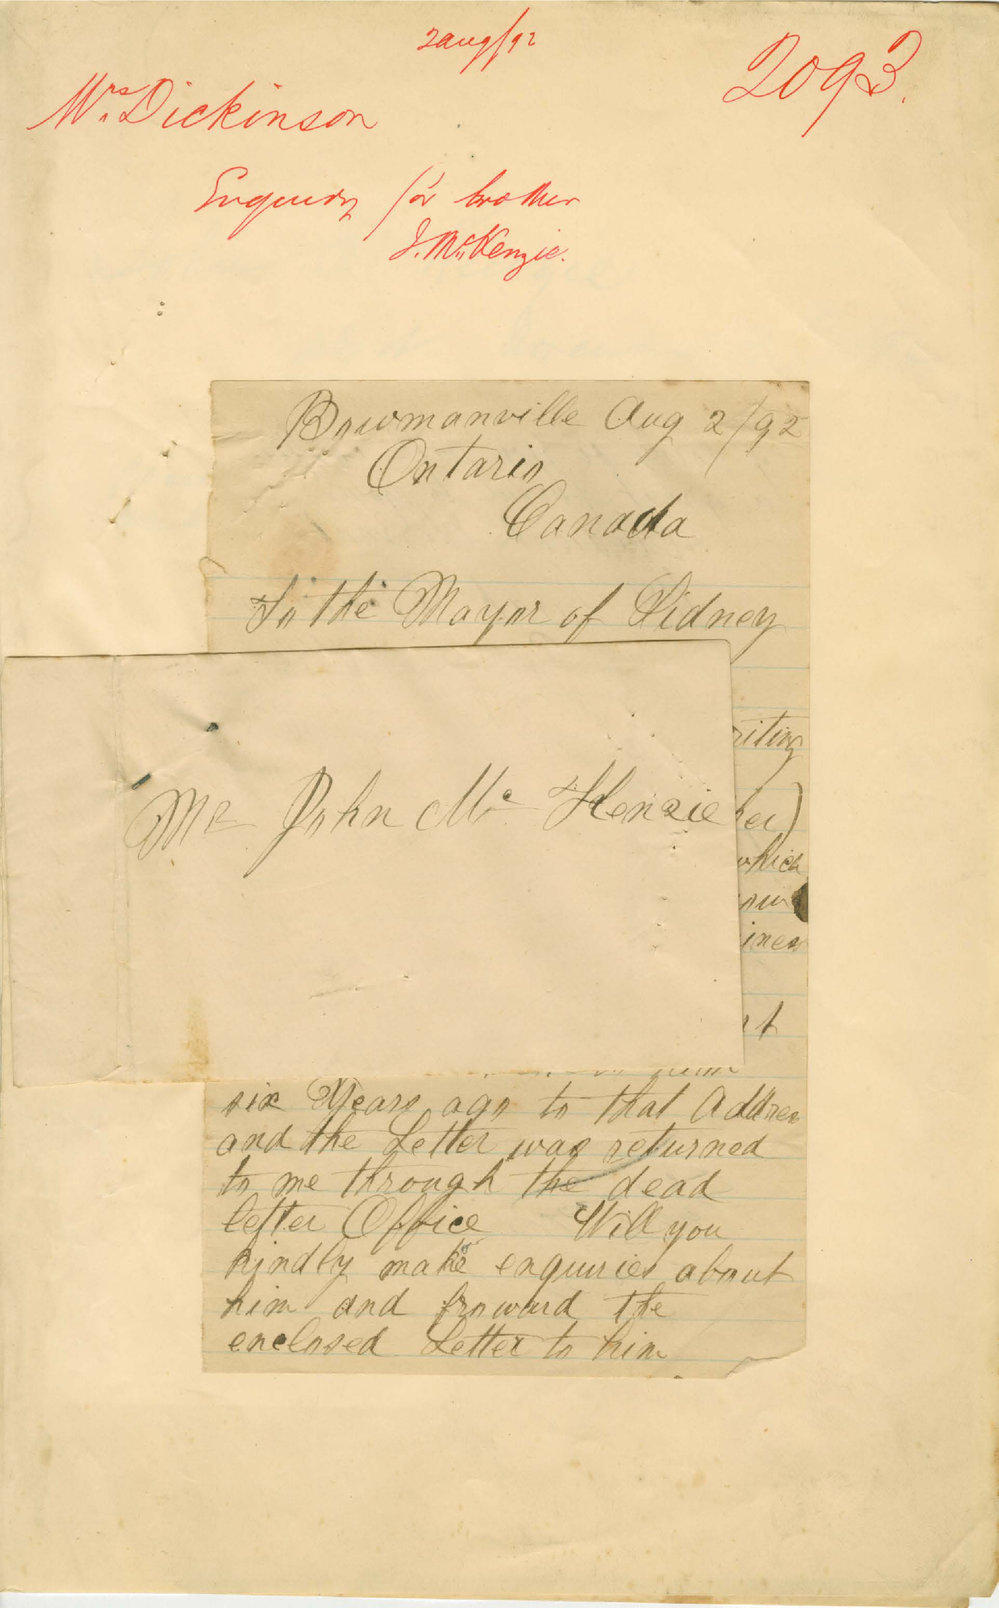 2 Aug/92
2093.
Mrs Dickinson
Enquiry for brother
J. McKenzie.
Bowmanville Aug 2/92
Ontario
Canada
To the Mayor of Sidney
riting
Mr John Mc Kenzie
her)
which
iness
six Years ago to that Address
and the Letter was returned
to me through the dead
letter Office Will you
kindly make enquiries about
him and froward the
enclosed Letter to him